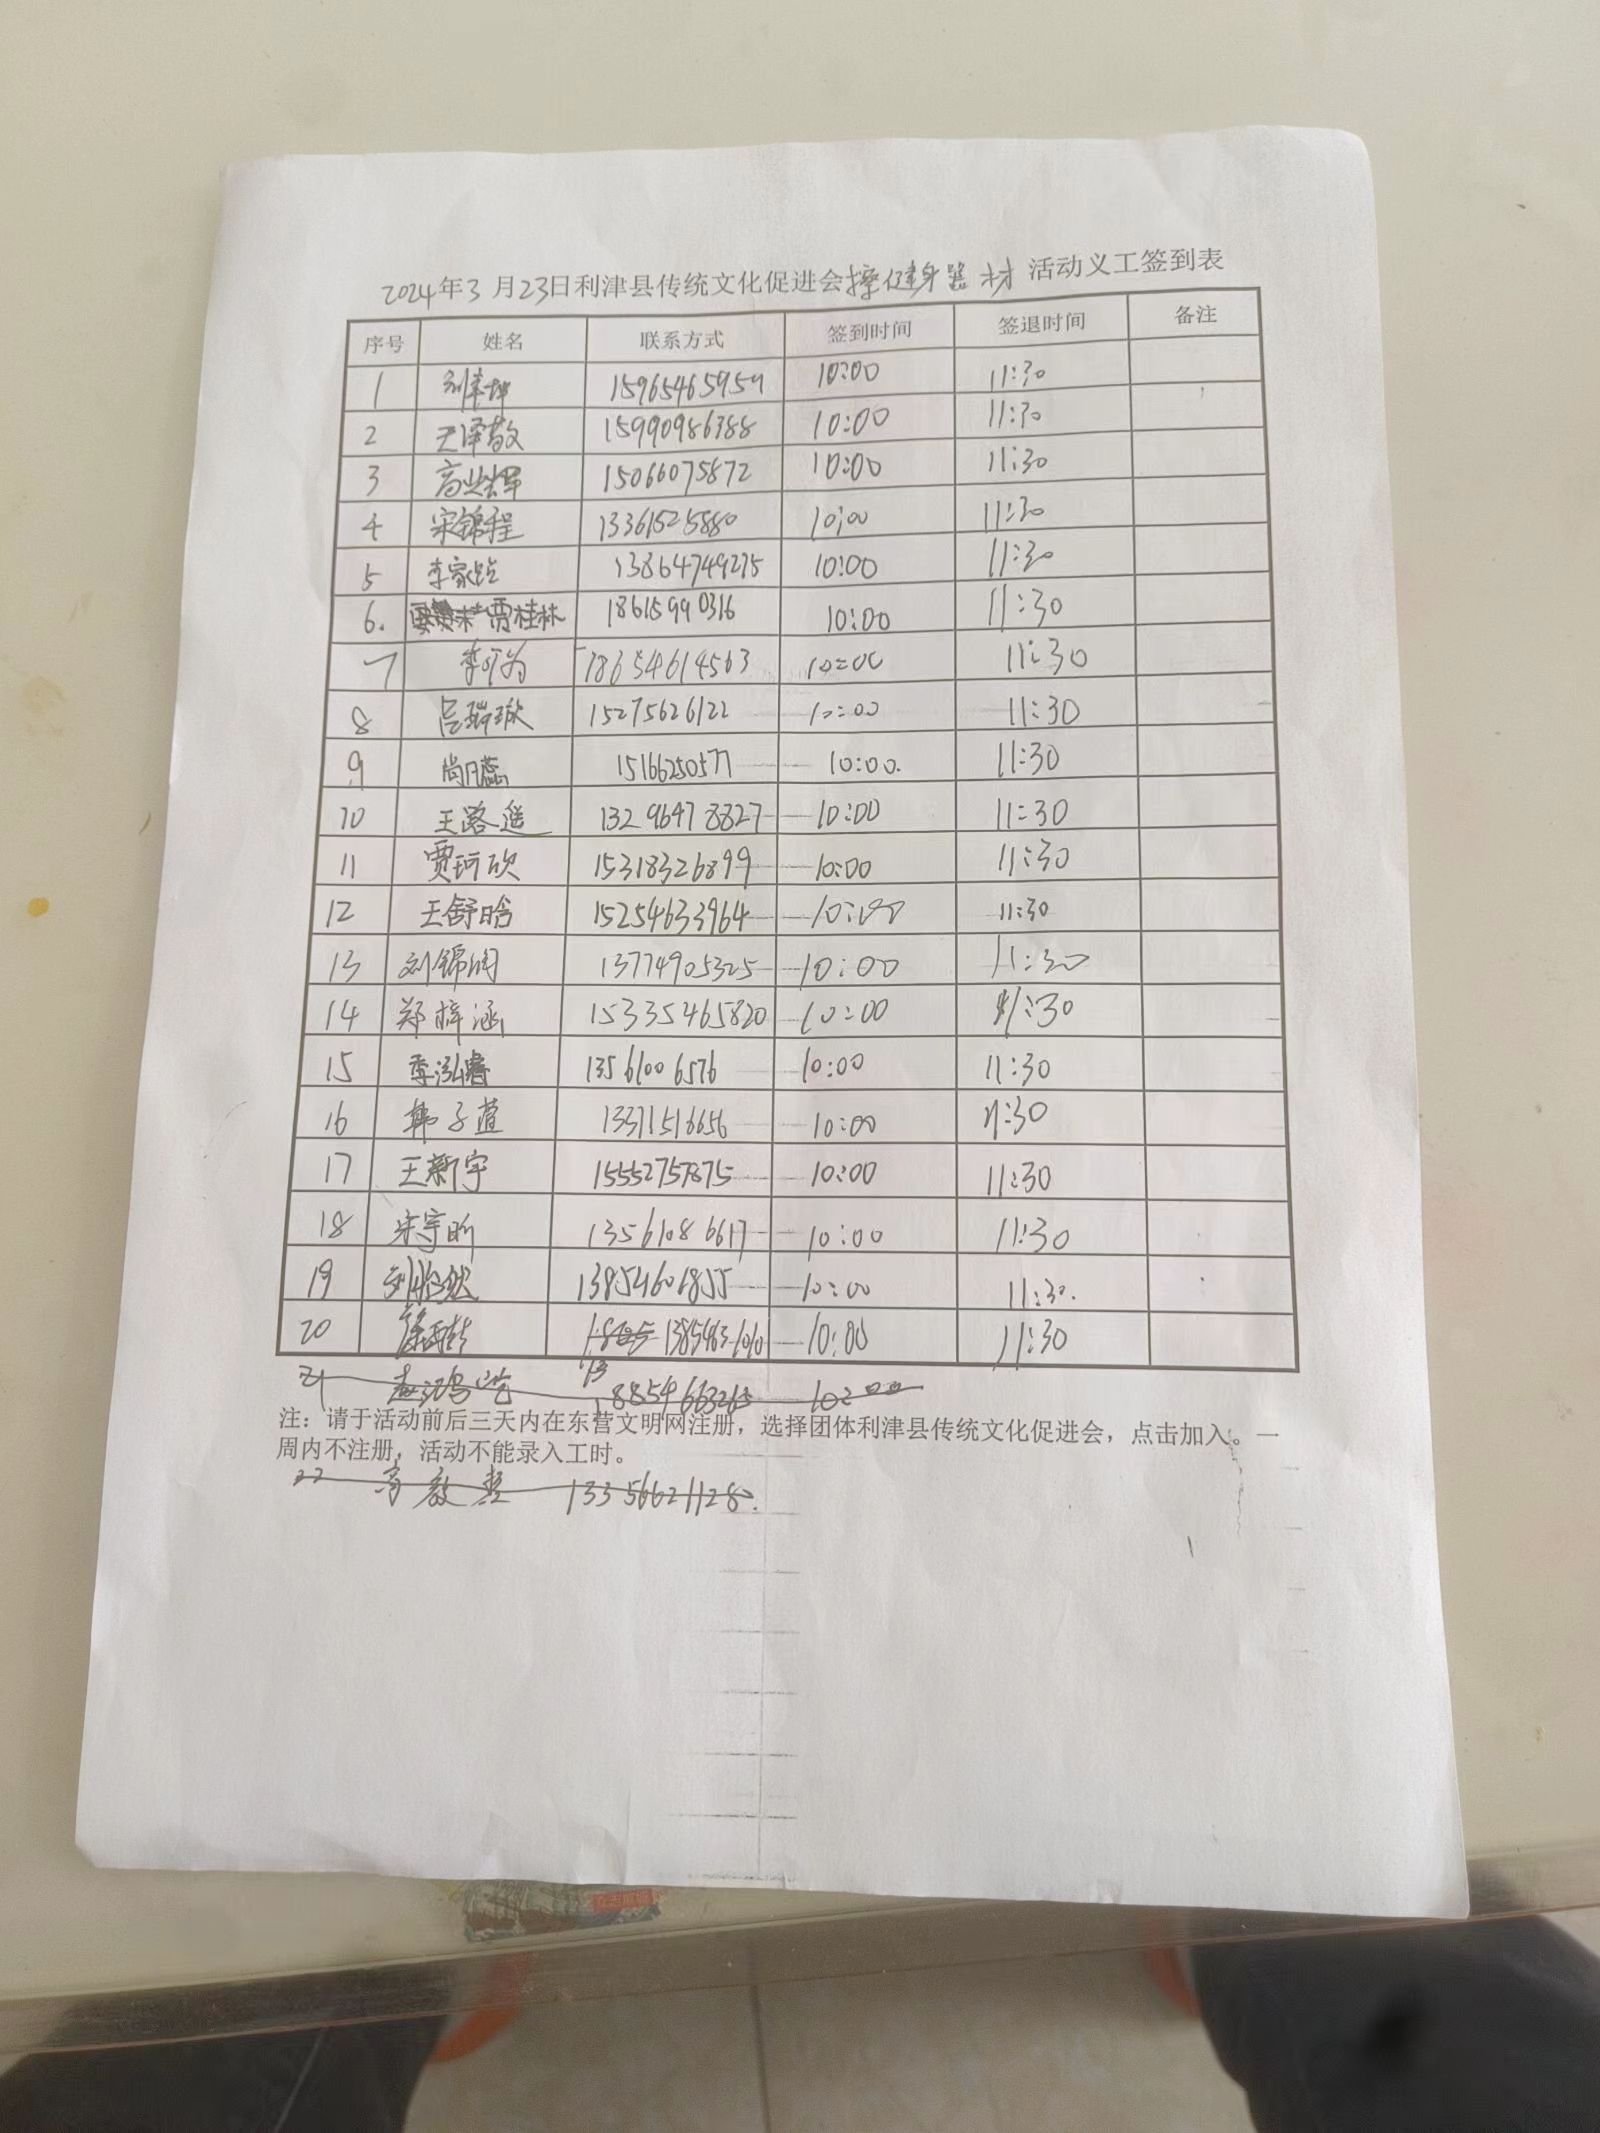 2024年3月23日利津县传统文化促进会擦健身器材活动义工签到表
序号 姓名 联系方式 签到时间 签退时间 备注
1 15965465959 10:00 11:30
2 15990986388 10:00 11:30
3 15066075872 10:00 11:30
4 宋锦程 13361525880 10:00 11:30
5 李家 13864749275 10:00 11:30
6. 贾桂林 18615990316 10:00 11:30
7 李可为 18654614563 10:00 11:30
8 吕瑞璇 15275626122 10:00 11:30
9 尚凡蕊 15166250577 10:00. 11:30
10 王路遥 13296478827 10:00 11:30
11 贾珂欣 15318326899 10:00 11:30
12 王舒晗 15254633964 10:00 11:30
13 刘锦润 13774905325 10:00 11:30
14 郑梓涵 15335465820 10:00 11:30
15 季泓睿 13561006576 10:00 11:30
16 韩子萱 13371516656 10:00 11:30
17 王新宇 15552757875 10:00 11:30
18 宋宇昕 13561086617 10:00 11:30
19 刘 然 13854601855 10:00 11:30.
20 10:00 11:30
21 18854663263 10:00
注：请于活动前后三天内在东营文明网注册，选择团体利津县传统文化促进会，点击加入。一
周内不注册，活动不能录入工时。
22 13356621128.